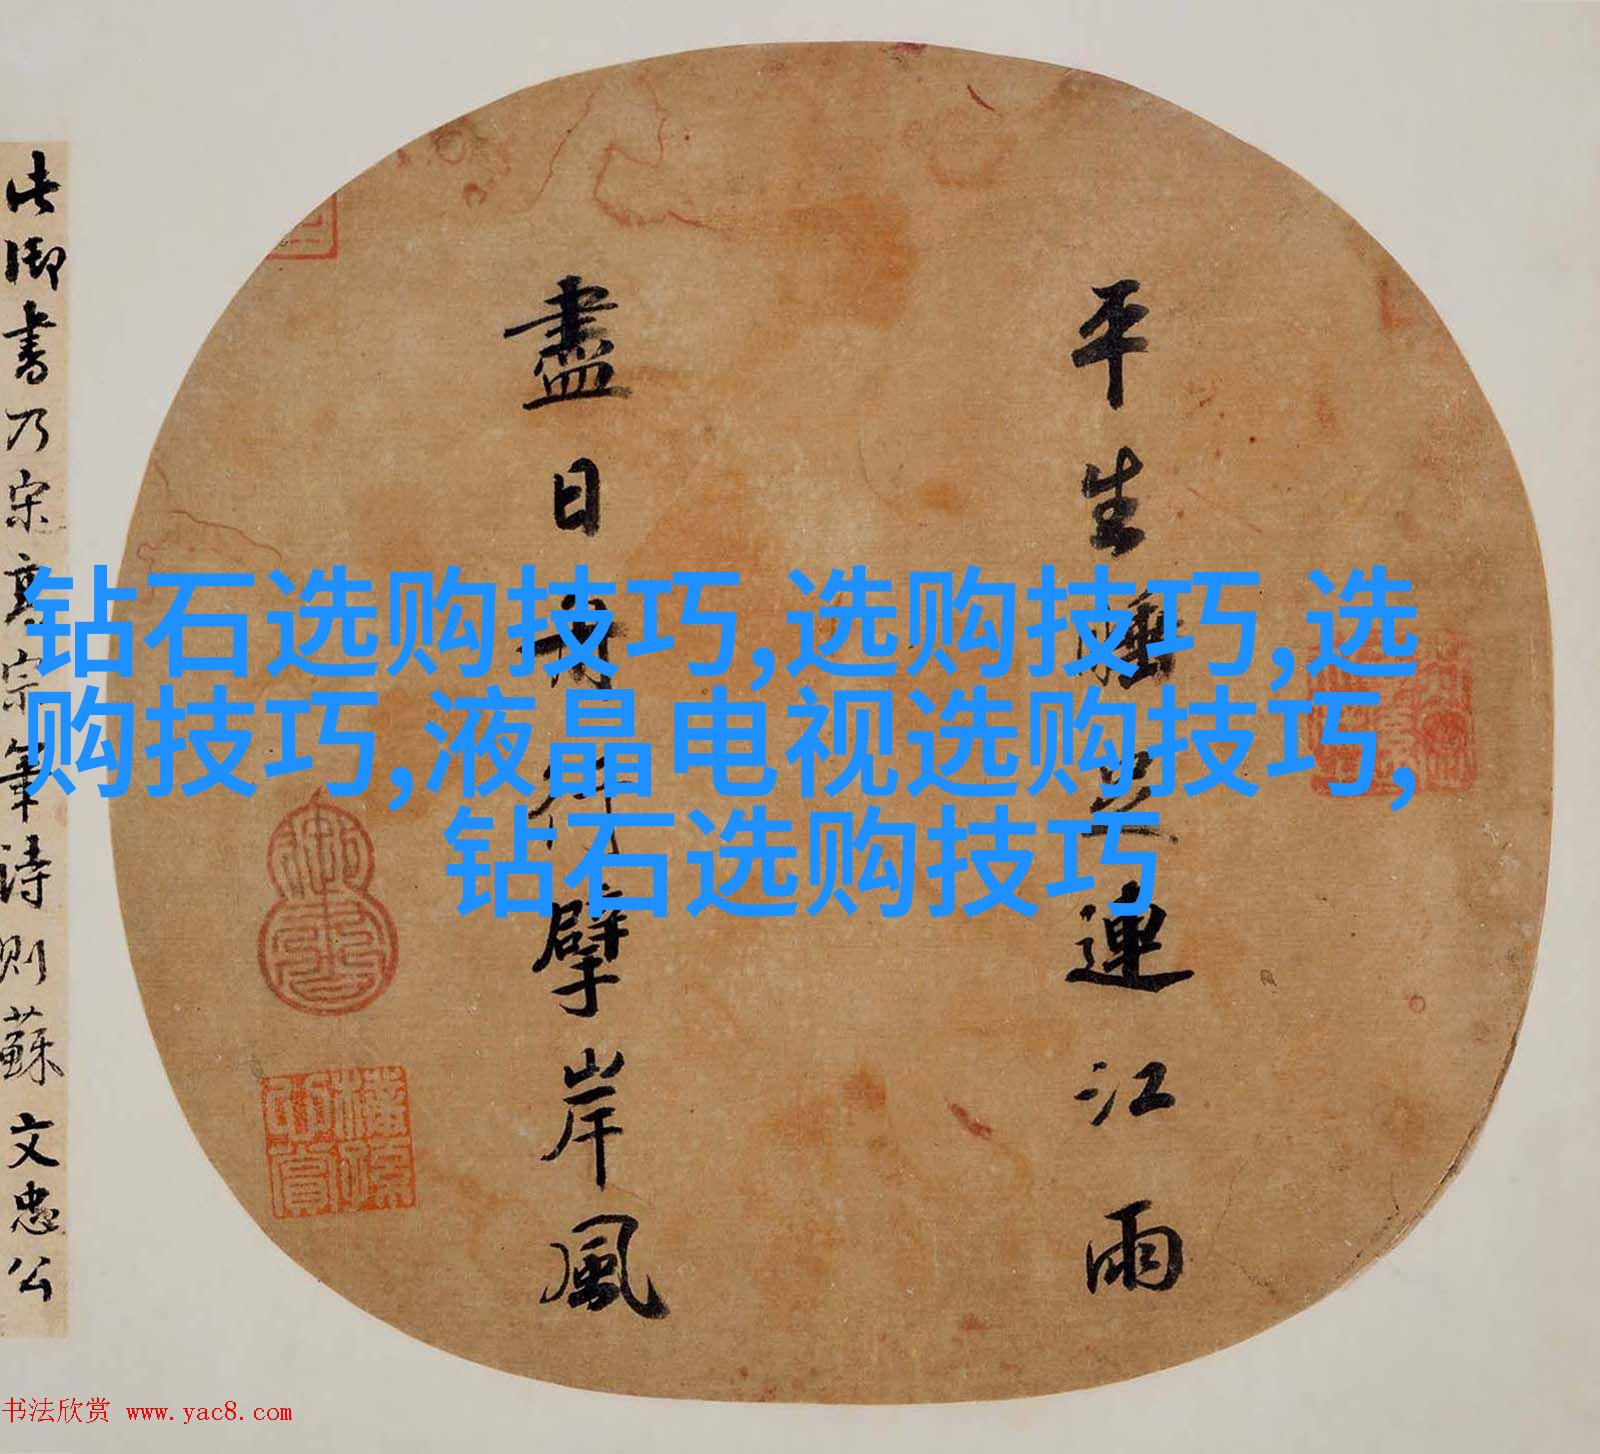 平生睡足連江雨
盡日舟橫擘岸風
此御書乃宋高宗筆詩則蘇文忠公
钻石选购技巧,选购技巧,选
购技巧,液晶电视选购技巧,
钻石选购技巧
书法欣赏 www.yac8.com